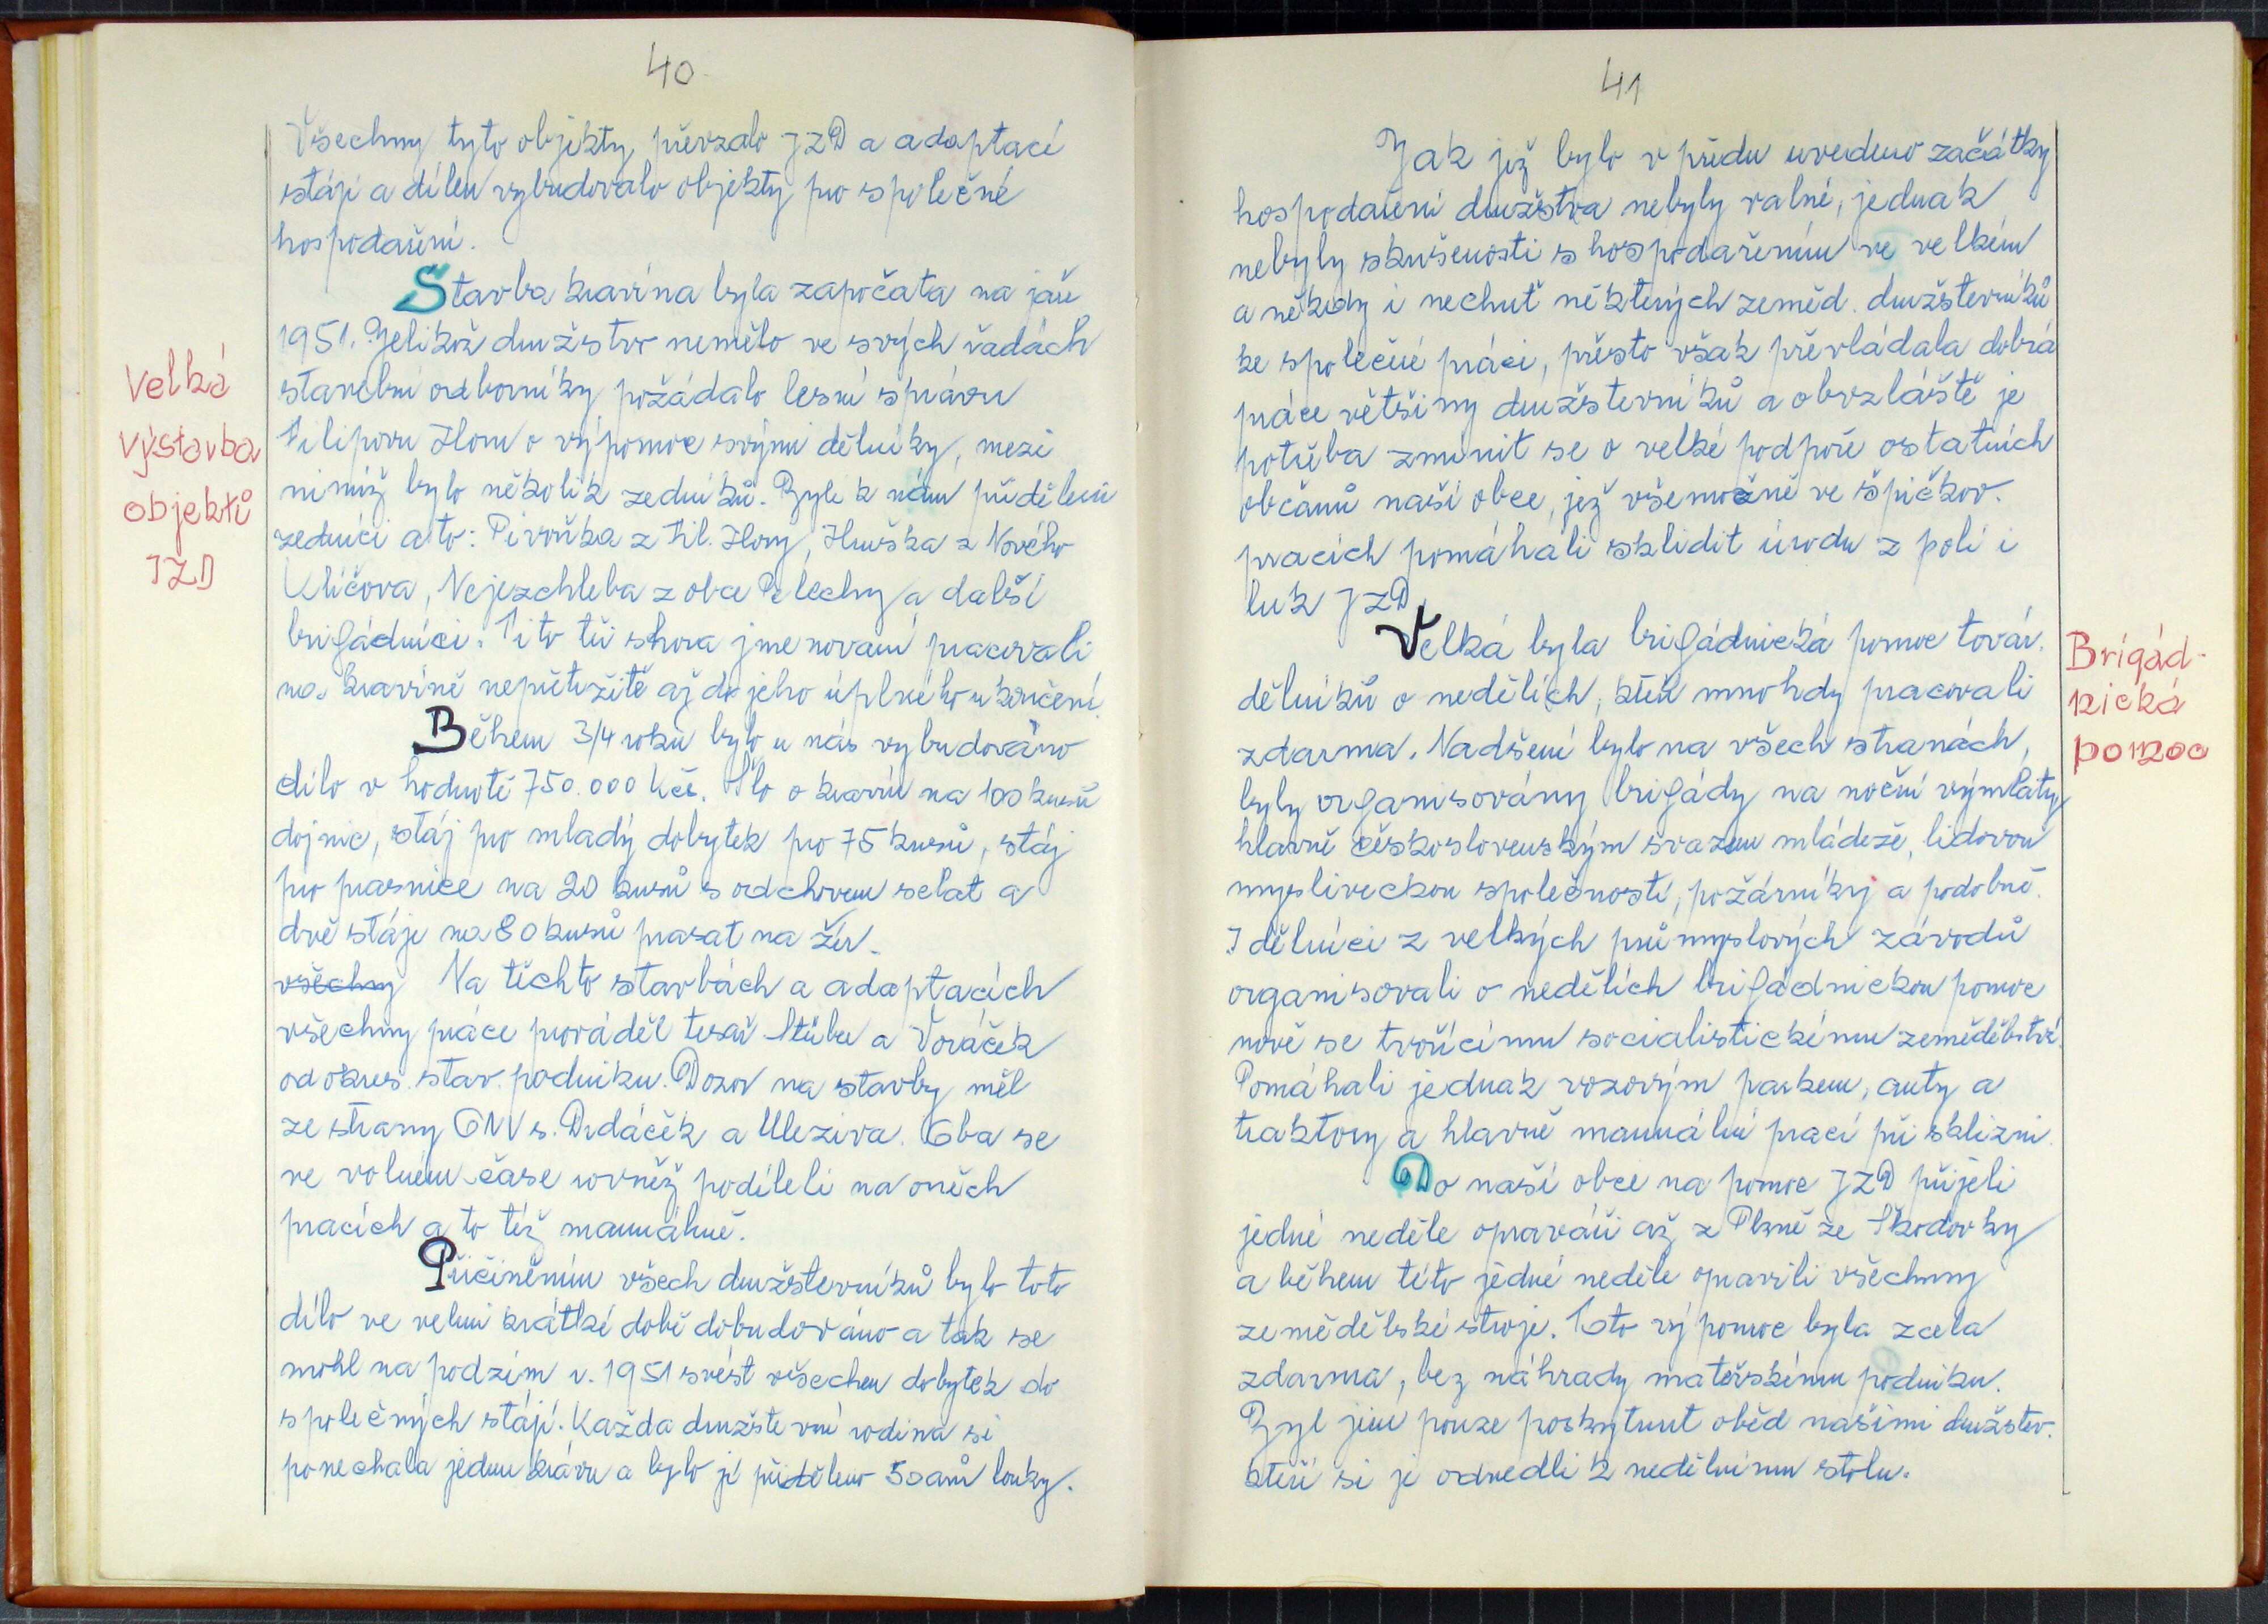 40
Všechny tyto objekty převzalo JZD a adaptací
stájí a dílen vybudovalo objekty pro společné
hospodaření.
Stavba kravína byla započata na jaře
1951. Jelikož družstvo nemělo ve svých řadách
stavební odborníky požádalo lesní správu
Filipovu Horu o výpomoc svými dělníky, mezi
nimiž bylo několik zedníků. Byli k nám přiděleni
zedníci a to: Pivoňka z Fil. Hory, Hruška z Nového
Klíčova, Nejezchleba z obce Pelechy a další
brigádníci. Tito tři shora jmenovaní pracovali
na kravíně nepřetržitě až do jeho úplného ukončení.
Během 3/4 roku bylo u nás vybudováno
dílo v hodnotě 750.000 Kčs. Šlo o kravín na 100 kusů
dojnic, stáj pro mladý dobytek pro 75 kusů, stáj
pro prasnice na 20 kusů s odchovem selat a
dvě stáje na 80 kusů prasat na žír.
všechny Na těchto stavbách a adaptacích
všechny práce prováděl tesař Stüber a Voráček
od okres. stav. podniku. Dozor na stavby měl
ze strany ONV s. Drdáček a Uleziva. Oba se
ve volném čase rovněž podíleli na oněch
pracích a to též manuálně.
Přičiněním všech družstevníků bylo toto
dílo ve velmi krátké době dobudováno a tak se
mohl na podzim r. 1951 svést všechen dobytek do
společných stájí. Každa družstevní rodina si
ponechala jednu krávu a bylo jí přiděleno 50 arů louky.
Velká
výstavba
objektů
JZD
41
Jak již bylo v předu uvedeno začátky
hospodaření družstva nebyly valné, jednak
nebyly skušenosti s hospodařením ve velkém
a někdy i nechuť některých zeměd. družstevníků
ke společné práci, přesto však převládala dobrá
práce většiny družstevníků a obvzláště je
potřeba zmínit se o velké podpoře ostatních
občanů naší obce, jež všemožně ve špičkov.
pracích pomáhali sklidit úrodu z polí i
luk JZD.
Velká byla brigádnická pomoc továr.
dělníků o nedělích, kteří mnohdy pracovali
zdarma. Nadšení bylo na všech stranách,
byly organisovány brigády na noční výmlaty
hlavně československým svazem mládeže, lidovou
mysliveckou společností, požárníky a podobně.
I dělníci z velkých průmyslových závodů
organisovali o nedělích brigádnickou pomoc
nově se tvořícímu socialistickému zemědělství.
Pomáhali jednak vozovým parkem, auty a
traktory a hlavně manuální prací při sklizni.
Do naší obce na pomoc JZD přijeli
jedné neděle opraváři až z Plzně ze Škodovky
a během této jedné neděle opravili všechny
zemědělské stroje. Tato výpomoc byla zcela
zdarma, bez náhrady mateřskému podniku.
Byl jim pouze poskytnut oběd našimi družstev.
kteří si je odvedli k nedělnímu stolu.
Brigád-
nická
pomoc